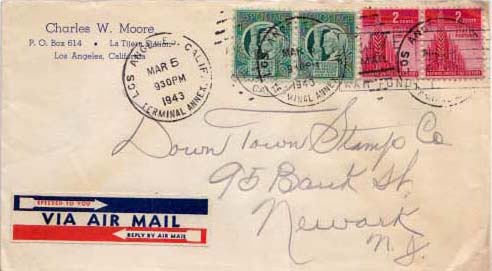 Charles W. Moore
P. O. Box 614 • La Tijera Station
Los Angeles, California
LOS ANGELES, CALIF.
MAR 5
930PM
1943
TERMINAL ANNEX.
LOS AN
MAR
930PM
1943
CALIF.
MINAL ANNEX
WAR FUND
2 CENTS
2 CENTS
LOS ANGELES
Down Town Stamp Co
95 Bank St.
Newark
N. J.
SPEEDED TO YOU
VIA AIR MAIL
REPLY BY AIR MAIL